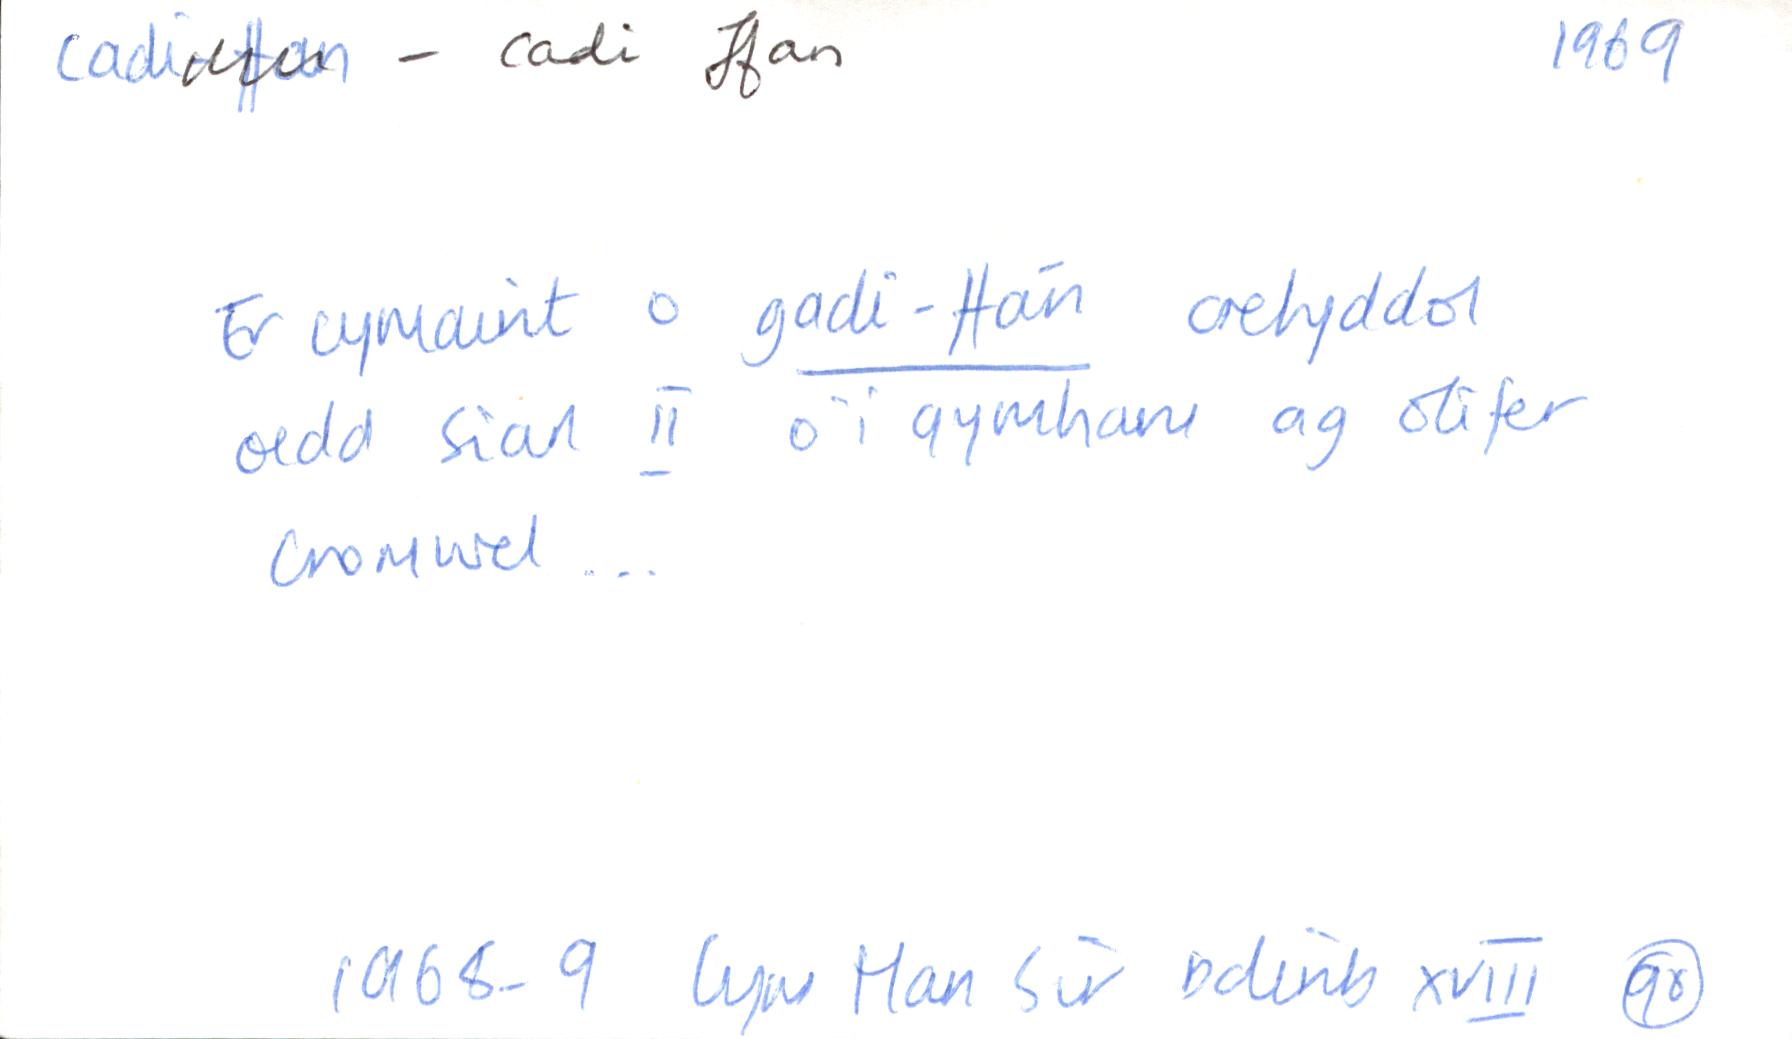 cadi ffan - cadi ffan 1969
Er cymaint o gadi-ffan crefyddol
oedd Siarl II o'i gymharu ag Olifer
Cromwel ...
1968-9 Cym Han Sir Ddinb XVIII